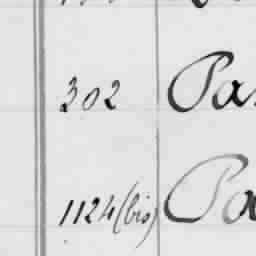 302 Pa
1124(bis) Pa